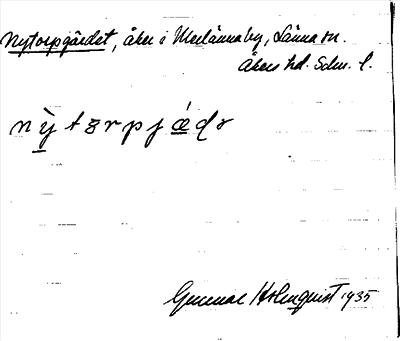 Nytorpgärdet, åker i Merlännaby, Länna sn.
Åkers hd. Södm. l.
nỳtɔrpjædə
Gunnar Holmquist 1935